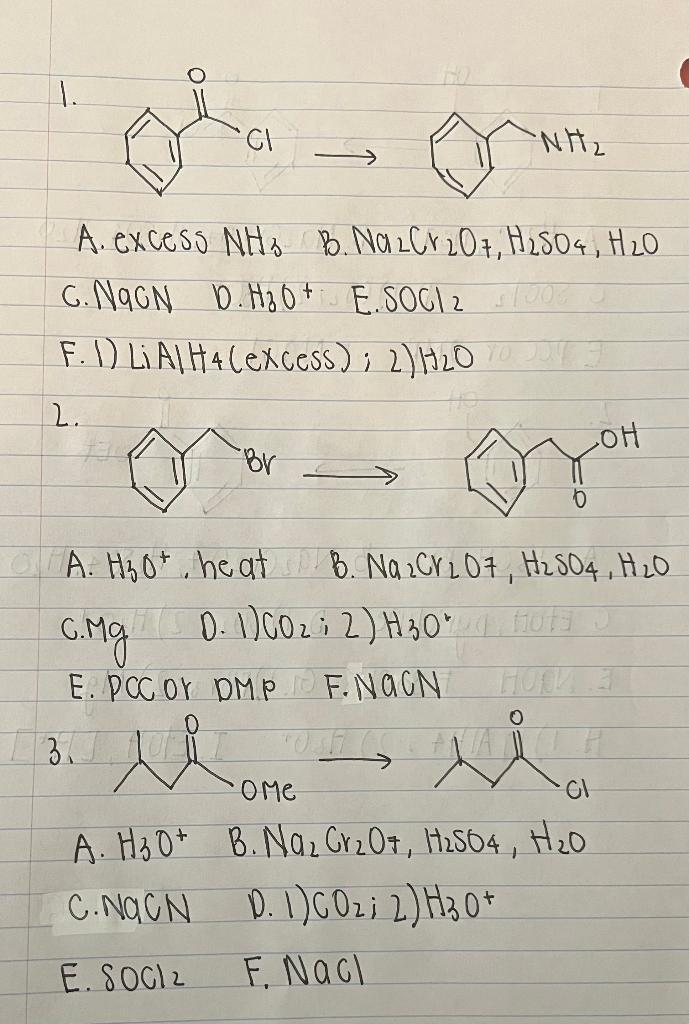 1.
O
Cl → NH2
A. excess NH3 B. Na2Cr2O7, H2SO4, H2O
C. NaCN D. H3O+ E. SOCl2
F. 1) LiAlH4 (excess) ; 2) H2O
2.
Br → OH
O
A. H3O+, heat B. Na2Cr2O7, H2SO4, H2O
C. Mg D. 1) CO2 ; 2) H3O+
E. PCC or DMP F. NaCN
3.
O O
OMe → Cl
A. H3O+ B. Na2Cr2O7, H2SO4, H2O
C. NaCN D. 1) CO2 ; 2) H3O+
E. SOCl2 F. NaCl